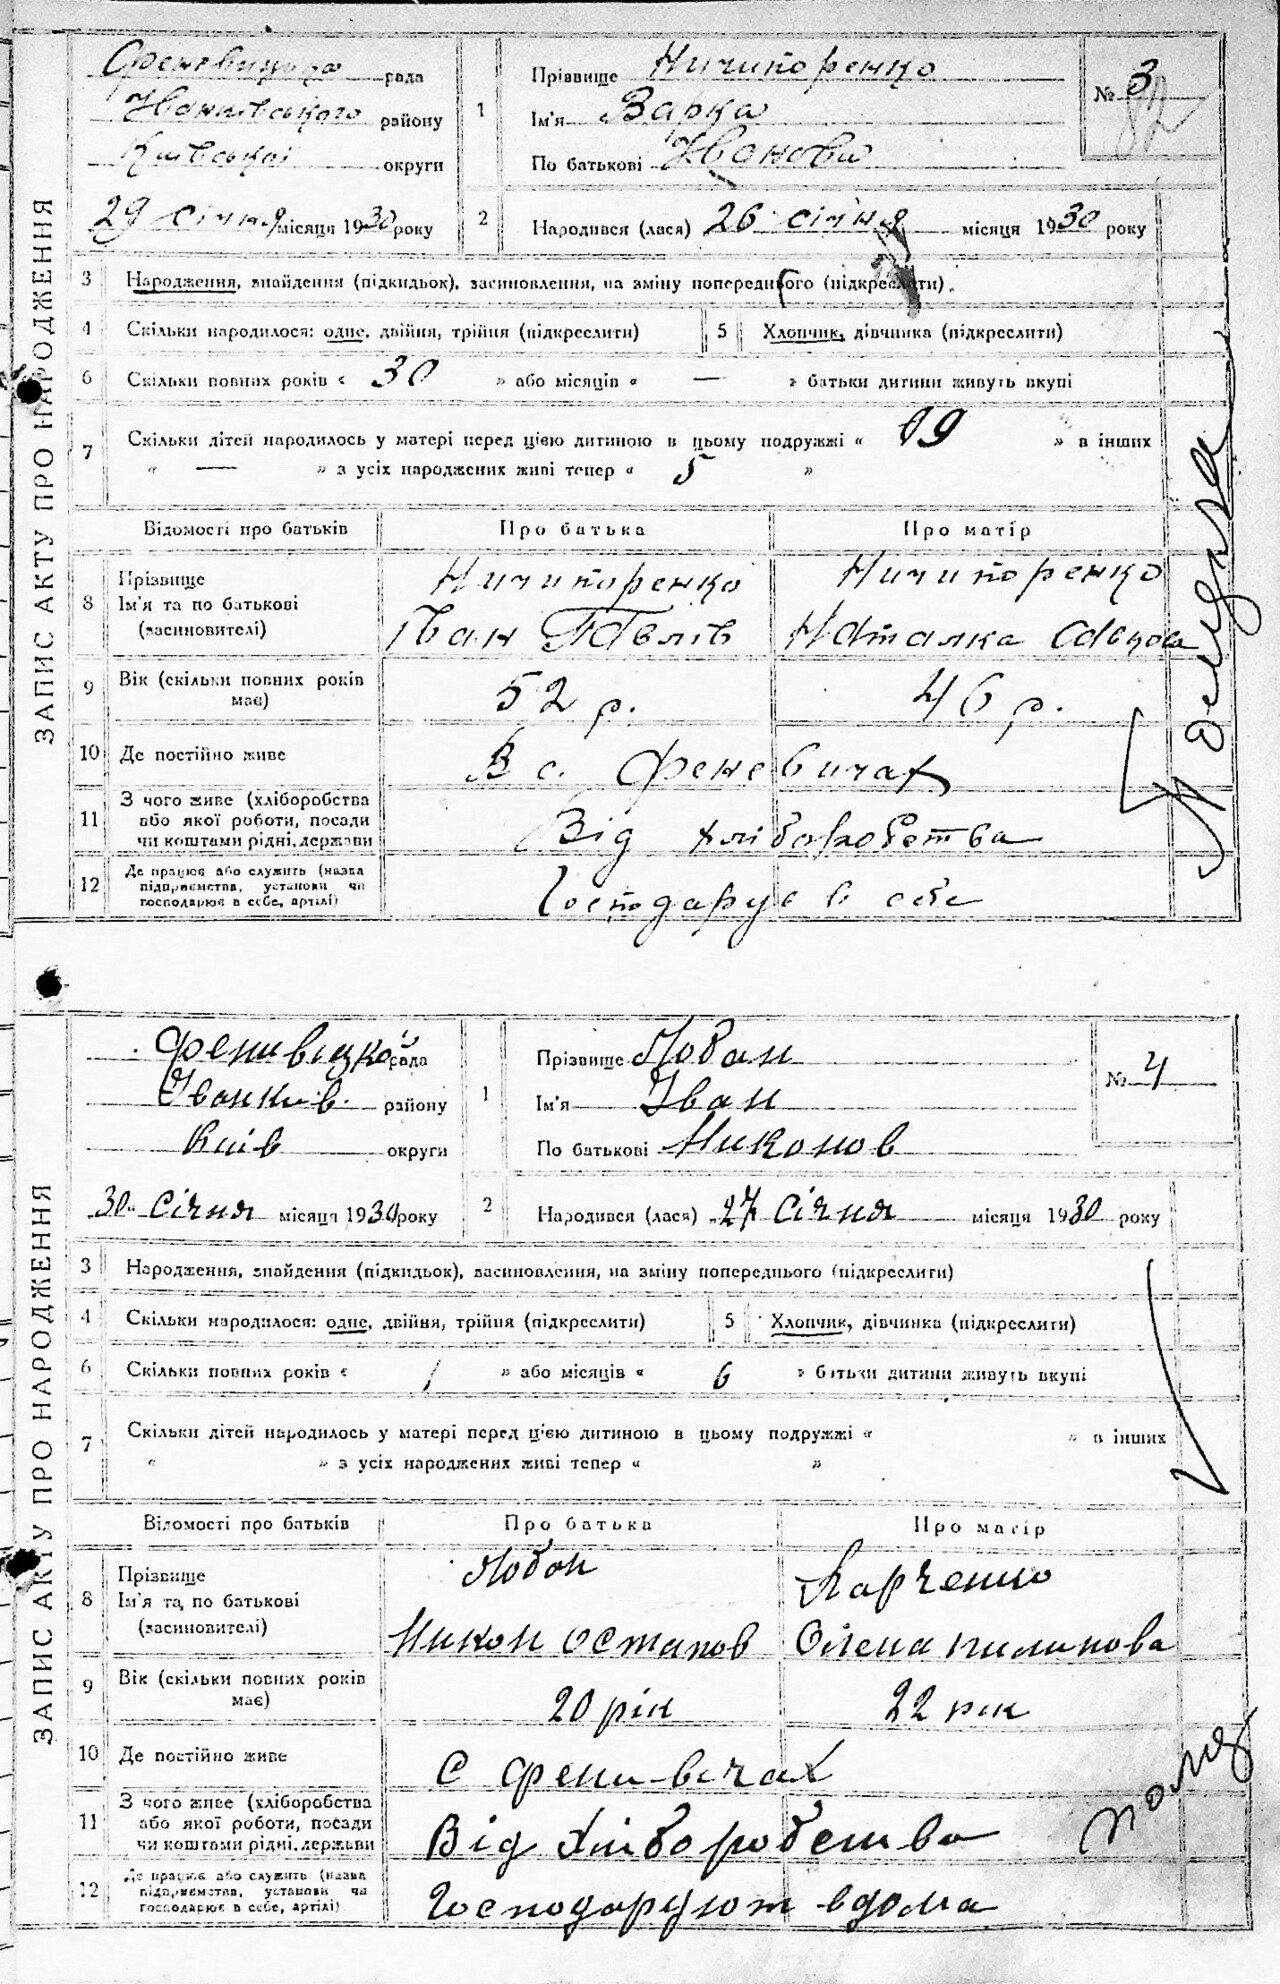 ЗАПИС АКТУ ПРО НАРОДЖЕННЯ
рада
Іванківського району
Київської округи
29 січня місяця 1930 року
1
Прізвище Ничипоренко
Ім'я Варка
По батькові Іванова
№ 3
82
2
Народився (лася) 26 січня місяця 1930 року
3 Народження, знайдення (підкидьок), засиновлення, на зміну попереднього (підкреслити).
4 Скільки народилося: одне, двійня, трійня (підкреслити) 5 Хлопчик, дівчинка (підкреслити)
6 Скільки повних років « 30 » або місяців « — » батьки дитини живуть вкупі
7 Скільки дітей народилось у матері перед цією дитиною в цьому подружжі « 9 » в інших
« — » з усіх народжених живі тепер « 5 »
Відомості про батьків Про батька Про матір
8 Прізвище Ничипоренко Ничипоренко
Ім'я та по батькові Іван Павлів Наталка
(засиновителі)
9 Вік (скільки повних років має) 52 р. 46 р.
10 Де постійно живе В с. Феневичах
11 З чого живе (хліборобства
або якої роботи, посади
чи коштами рідні, держави Від хліборобства
12 Де працює або служить (назва
підприємства, установи чи
господарює в себе, артілі) Господарує в себе
ЗАПИС АКТУ ПРО НАРОДЖЕННЯ
рада
Іванків. району
Київ округи
30 січня місяця 1930 року
1
Прізвище Лобан
Ім'я Іван
По батькові Никонов
№ 4
2
Народився (лася) 27 січня місяця 1930 року
3 Народження, знайдення (підкидьок), засиновлення, на зміну попереднього (підкреслити)
4 Скільки народилося: одне, двійня, трійня (підкреслити) 5 Хлопчик, дівчинка (підкреслити)
6 Скільки повних років « 1 » або місяців « 6 » батьки дитини живуть вкупі
7 Скільки дітей народилось у матері перед цією дитиною в цьому подружжі « » в інших
« » з усіх народжених живі тепер « »
Відомості про батьків Про батька Про матір
8 Прізвище Лобан
Ім'я та по батькові Никон Остапов Олена пилипова
(засиновителі)
9 Вік (скільки повних років має) 20 рік 22 рік
10 Де постійно живе с фенивичах
11 З чого живе (хліборобства
або якої роботи, посади
чи коштами рідні, держави Від хліборобства
12 Де працює або служить (назва
підприємства, установи чи
господарює в себе, артілі) Господаруют вдома